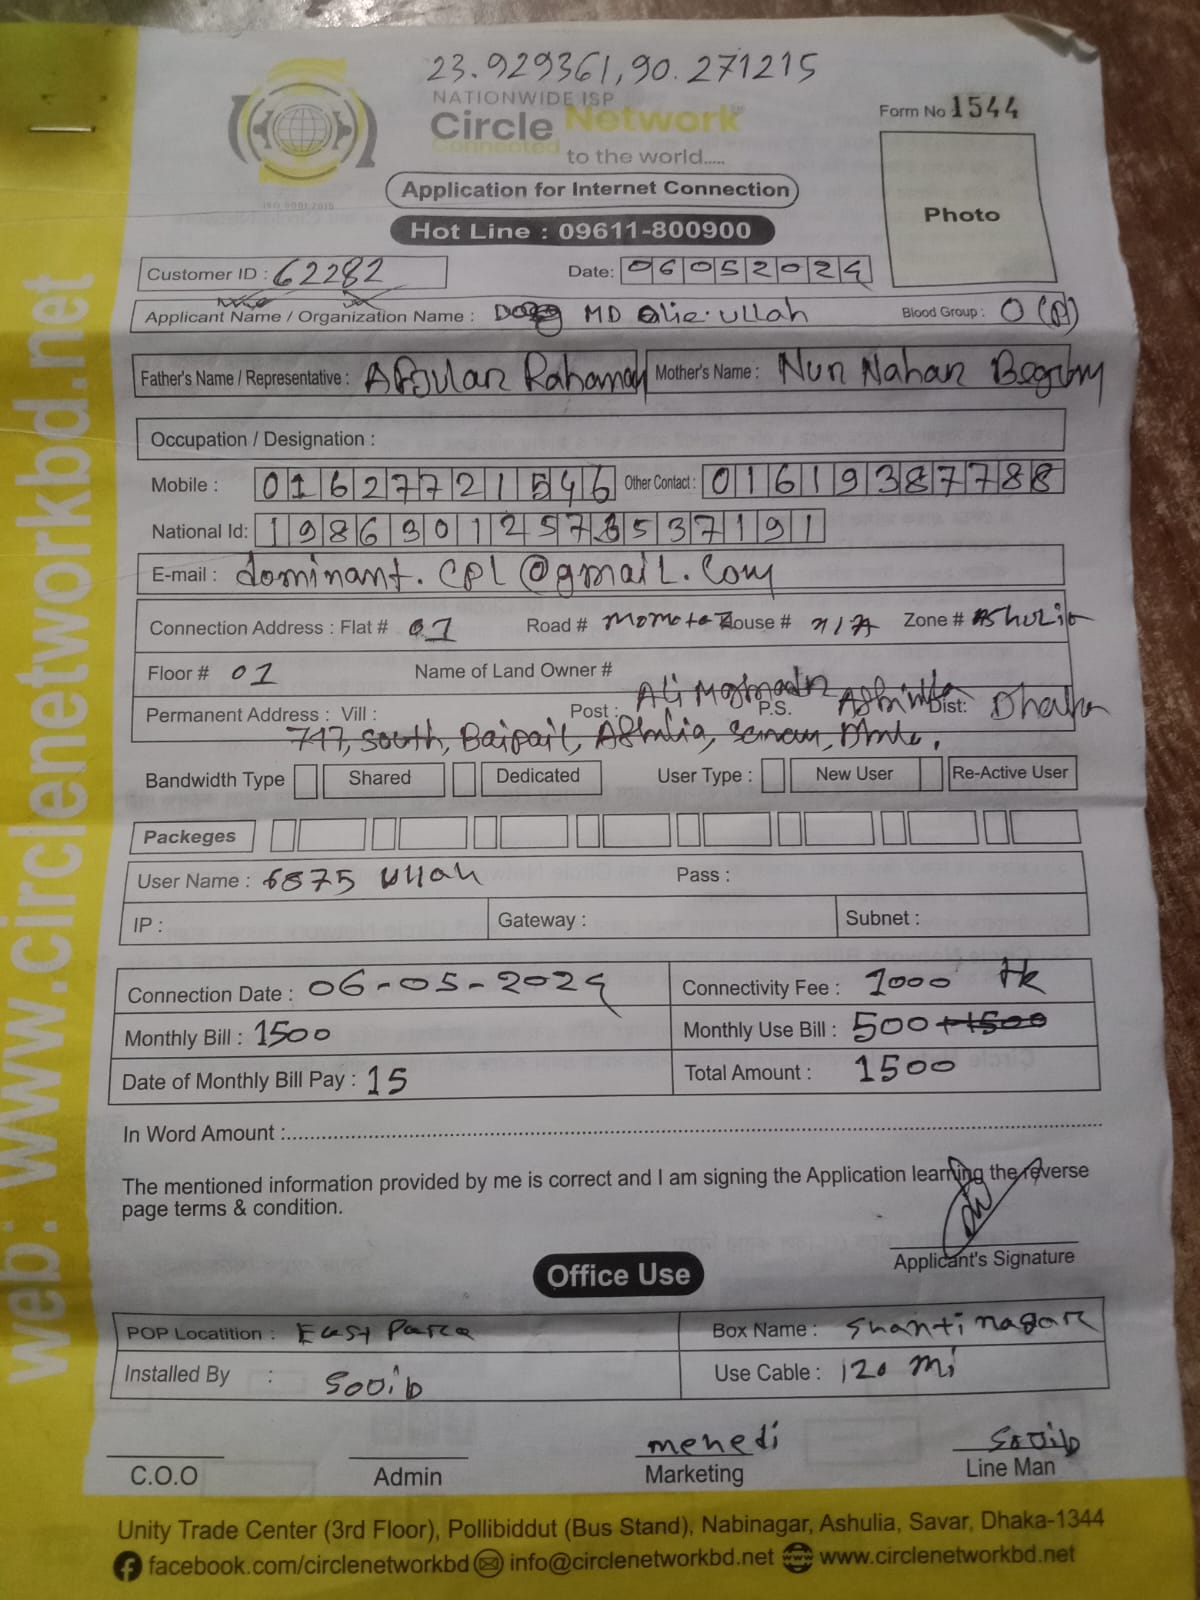 23.929361, 90.271215
NATIONWIDE ISP
Circle Network
Connected
to the world.....
ISO 9001:2015
Form No 1544
Photo
Application for Internet Connection
Hot Line : 09611-800900
Customer ID : 62282 Date: 06052024
Applicant Name / Organization Name : MD Olie.ullah Blood Group : O
Father's Name / Representative : Rahaman Mother's Name : Nur Nahar
Occupation / Designation :
Mobile : 01627721546 Other Contact : 01619387788
National Id:
E-mail : dominant.cpl@gmail.com
Connection Address : Flat # 01 Road # Momota House # n/A Zone # Ashulia
Floor # 01 Name of Land Owner #
Permanent Address : Vill : Post : Ali P.S. Dist: Dhaka
747, South, Baipail, Ashulia,
Bandwidth Type Shared Dedicated User Type : New User Re-Active User
Packeges
User Name : 6875 Ullah Pass :
IP : Gateway : Subnet :
Connection Date : 06-05-2024 Connectivity Fee : 1000 tk
Monthly Bill : 1500 Monthly Use Bill : 500 +1500
Date of Monthly Bill Pay : 15 Total Amount : 1500
In Word Amount :
The mentioned information provided by me is correct and I am signing the Application learning the reverse
page terms & condition.
Applicant's Signature
Office Use
POP Locatition : East Para Box Name : Shanti nagar
Installed By : Sojib Use Cable : 120 mi
mehedi Sojib
C.O.O Admin Marketing Line Man
Unity Trade Center (3rd Floor), Pollibiddut (Bus Stand), Nabinagar, Ashulia, Savar, Dhaka-1344
facebook.com/circlenetworkbd info@circlenetworkbd.net www.circlenetworkbd.net
web: www.circlenetworkbd.net